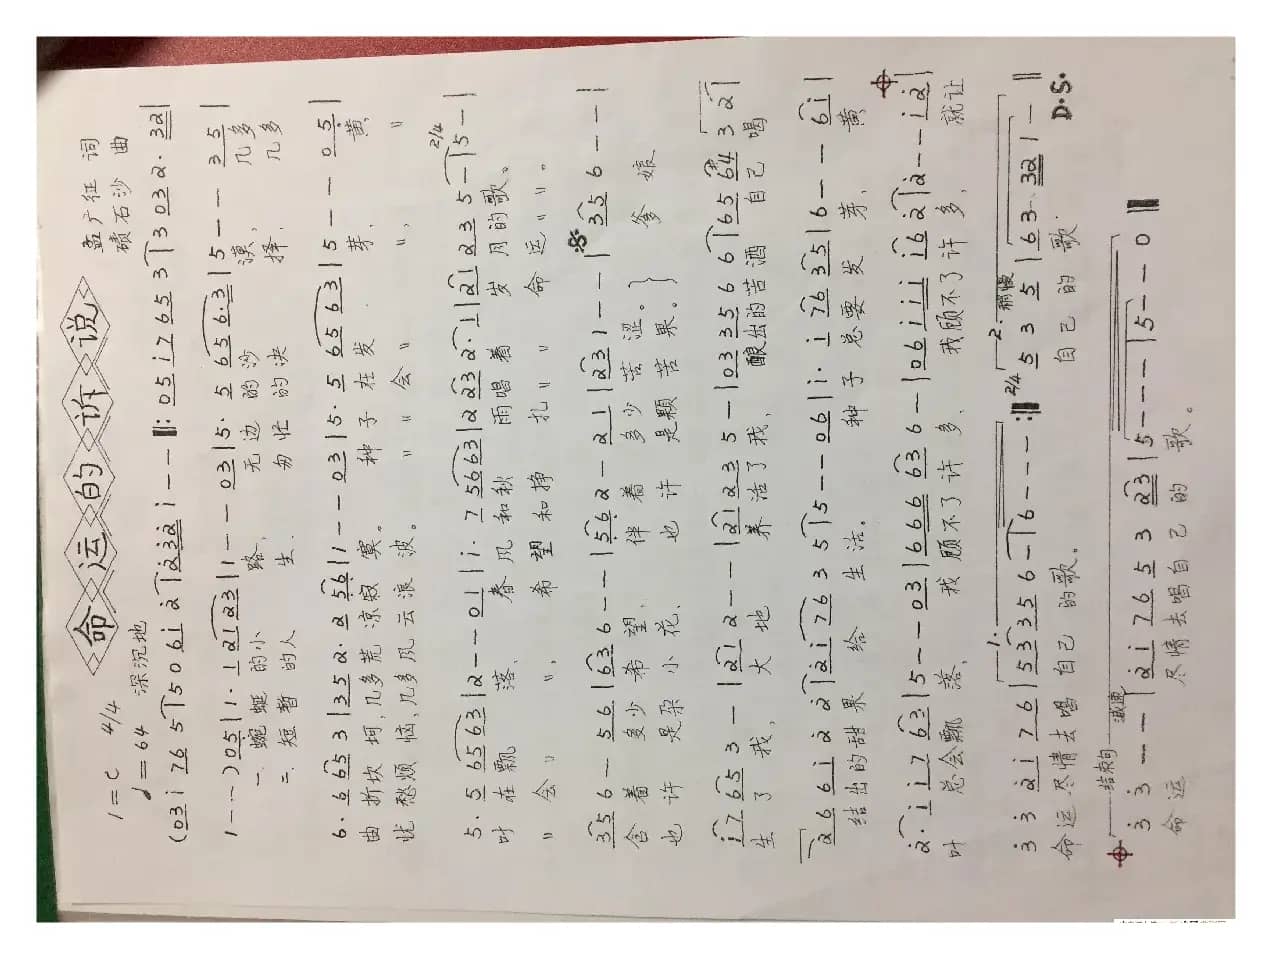 命运的诉说
1=C 4/4
♩=64 深沉地
孟广征 词
碛石沙 曲
(03 i 76 5 | 5 0 6 i 2 | 2 3 2 i - - ‖: 05 i 7 6 5 3 | 3 03 2· 32 |
1 - - ) 05 | 1· 1 2123 | 1 - - 03 | 5· 5 656·3 | 5 - - 35 |
一、蜿蜒的小 路, 无边的沙 漠, 几多
二、短暂的人 生, 匆忙的决 择, 几多
6· 6 65 3 | 352· 2 56 | 1 - - 03 | 5· 5 6563 | 5 - - 05 |
曲折坎 坷,几多荒凉寂 寞。 种子在发 芽, 黄
忧愁烦 恼,几多风云浪 波。 〃 〃 会 〃 〃, 〃
5· 5 6563 | 2 - - 01 | i· 7 5663 | 2 232· 1 | 21 235 - | 5 - |
2/4
叶在飘 落、 春风和秋 雨唱着 岁月的歌。
〃 会 〃 〃, 希望和挣 扎 〃 〃 命运 〃 〃。
35 6 - 56 | 63 6 - - | 56 2 - 21 | 23 1 - - | 35 6 - - |
含着 多少希 望, 伴着 多少苦 涩。 爹 娘
也许 是朵小 花、 也许 是颗苦 果。
i7 65 3 - | 21 2 - - | 21 23 5 - | 03 35 6 6 | 65 64 3 2 |
生了 我, 大 地 养活了 我, 酿出的苦酒 自己 喝
2 6 6 i 2 2 | 2 i 76 3 5 | 5 - - 06 | i· i 76 35 | 6 - - 6i |
结出的甜果 给 生 活。 种子总要发 芽, 黄
2· i i 7 63 | 5 - - 03 | 666 63 6 - | 06 i i i i6 2 | 2 - - i2 |
叶 总会飘 落, 我 顾不了许 多, 我顾不了许 多, 就让
3 3 2 i 7 6 | 53 335 6 - | 6 - - - :‖ 5 3 5 | 63· 32 1 - ‖
1. 2. 稍慢 2/4
命运尽情去 喝 自己 的歌。 自己 的 歌.
D.S.
结束句 减速
3 3 - - | 2 i 76 5 3 23 | 5 - - - | 5 - - 0 ‖
命运 尽情去喝自己 的 歌。